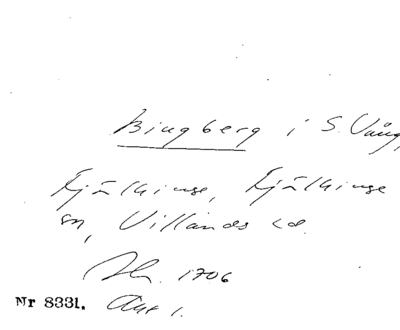 Bingberg i S. Vång,
Fjälkinge, Fjälkinge
sn, Villands hd.
1706
Nr 8331.